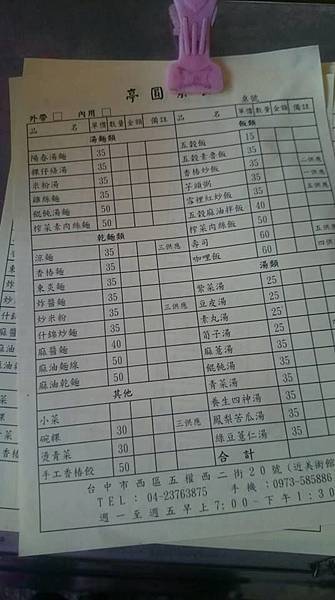 亭圓
外帶 內用 桌號
品名 單價 數量 金額 備註
湯麵類
陽春湯麵 35
粿仔條湯 35
米粉湯 35
雞絲麵 35
餛飩湯麵 50
榨菜素肉絲麵 50
乾麵類
涼麵 35 三供應
香椿麵 35
東炎麵 35
炸醬麵 35 三供應
炒米粉 35
什錦炒麵 35
麻醬麵 40
麻油麵線 50
麻油乾麵 50
其他
小菜
碗粿 30 三供應
燙青菜 30
手工香椿餃 50
品名 單價 數量 金額 備註
飯類
五穀飯 15
五穀素魯飯 35
香椿炒飯 35 二供應
芋頭粥 35 一供應
雪裡紅炒飯 35 五供應
五穀麻油拌飯 40
榨菜肉絲飯 50
壽司 60 五供應
咖哩飯 60 四供
湯類
紫菜湯 25
豆皮湯 25
素丸湯 25
筍子湯 25
麻薏湯 35
餛飩湯 35
青菜湯 35
養生四神湯 35
鳳梨苦瓜湯 35
綠豆薏仁湯 35
合計
台中市西區五權西二街20號(近美術館
TEL: 04-23763875 手機:0973-585886
週一至週五早上7:00-下午1:30